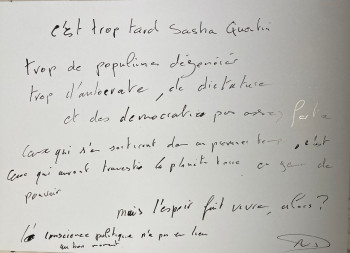 c'est trop tard Sasha
trop de populismes dégénérés
trop d'autocrate, de dictature
et des democraties pas assez forte
Ceux qui s'en sortiront dans un premier temps, c'est
Ceux qui auront travestis la planète terre en de
pouvoir
mais l'espoir fait vivre, alors?
conscience politique n'a pas eu lieu
au bon moment